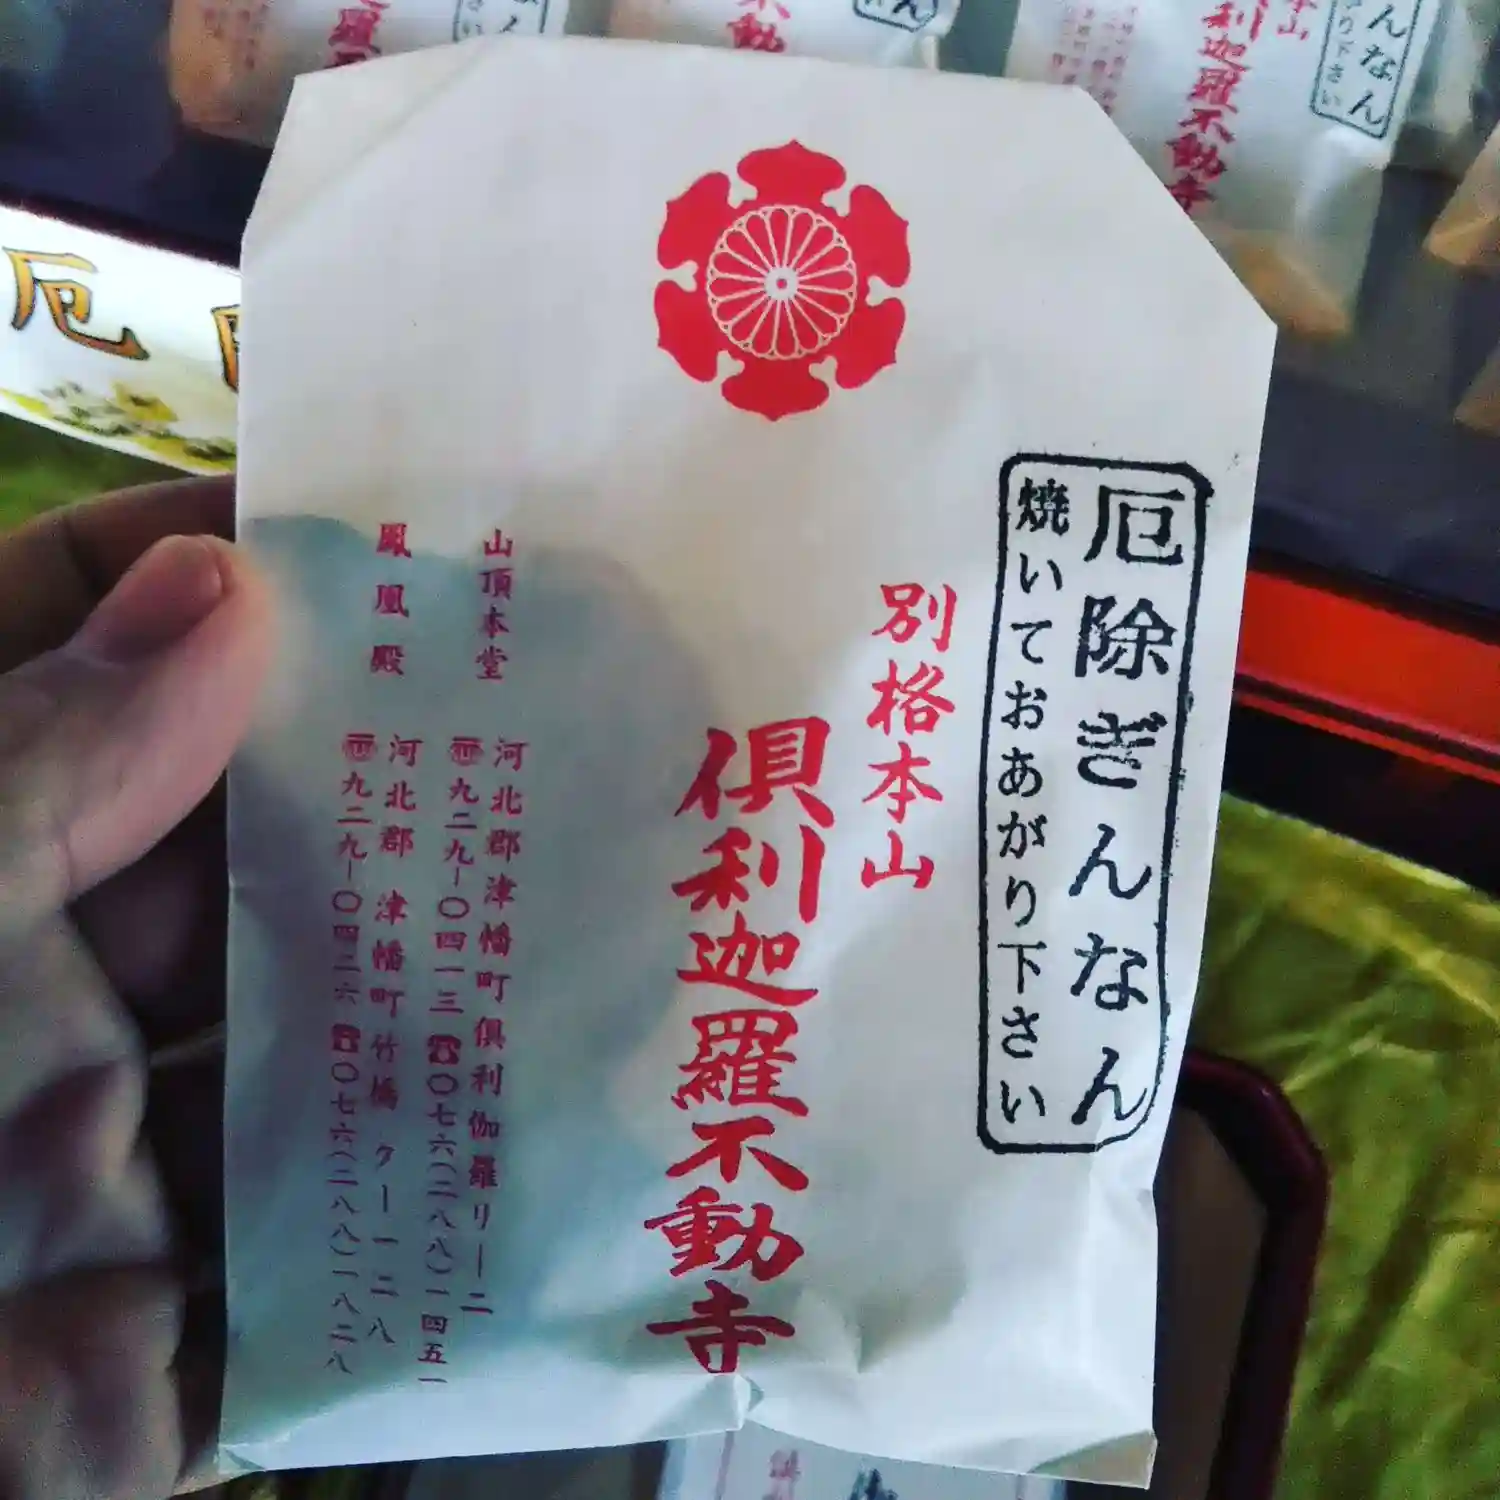 厄除ぎんなん
焼いておあがり下さい
別格本山
倶利迦羅不動寺
山頂本堂
河北郡津幡町倶利伽羅リ－二
〒九二九－〇四一三 ☎〇七六(二八八)一四五一
鳳凰殿
河北郡 津幡町竹橋 ク－一二八
〒九二九－〇四二六 ☎〇七六(二八八)一八二八
厄
んなん
り下さい
本山
利迦羅不動寺